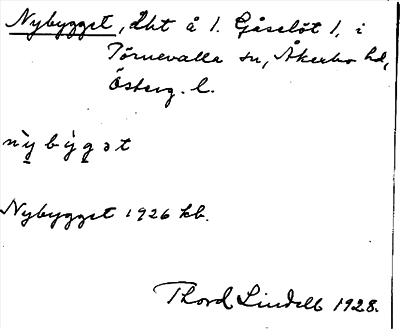 Nybygget, Lht å 1. Gåselöt 1, i
Törnevalla sn, Åkerbo hd,
Österg. l.
nỳbýgət
Nybygget 1926 kb.
Thord Lindell 1928.